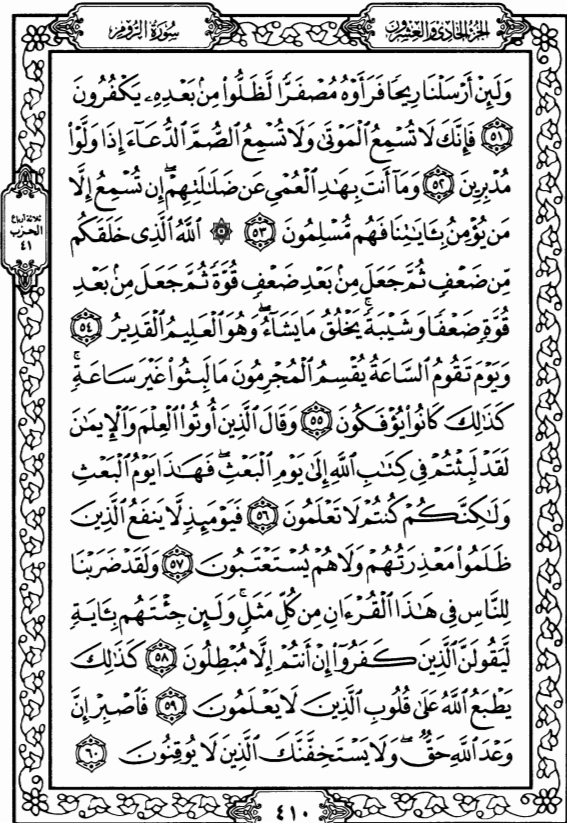 سُورَةُ الرُّومِ
الجُزْءُ الحَادِي وَالعِشْرُونَ
وَلَئِنْ أَرْسَلْنَا رِيحًا فَرَأَوْهُ مُصْفَرًّا لَّظَلُّوا۟ مِنۢ بَعْدِهِۦ يَكْفُرُونَ
﴿٥١﴾ فَإِنَّكَ لَا تُسْمِعُ ٱلْمَوْتَىٰ وَلَا تُسْمِعُ ٱلصُّمَّ ٱلدُّعَآءَ إِذَا وَلَّوْا۟
مُدْبِرِينَ ﴿٥٢﴾ وَمَآ أَنتَ بِهَٰدِ ٱلْعُمْىِ عَن ضَلَٰلَتِهِمْ ۖ إِن تُسْمِعُ إِلَّا
مَن يُؤْمِنُ بِـَٔايَٰتِنَا فَهُم مُّسْلِمُونَ ﴿٥٣﴾ ۞ ٱللَّهُ ٱلَّذِى خَلَقَكُم
مِّن ضَعْفٍ ثُمَّ جَعَلَ مِنۢ بَعْدِ ضَعْفٍ قُوَّةً ثُمَّ جَعَلَ مِنۢ بَعْدِ
قُوَّةٍ ضَعْفًا وَشَيْبَةً ۚ يَخْلُقُ مَا يَشَآءُ ۖ وَهُوَ ٱلْعَلِيمُ ٱلْقَدِيرُ ﴿٥٤﴾
وَيَوْمَ تَقُومُ ٱلسَّاعَةُ يُقْسِمُ ٱلْمُجْرِمُونَ مَا لَبِثُوا۟ غَيْرَ سَاعَةٍ ۚ
كَذَٰلِكَ كَانُوا۟ يُؤْفَكُونَ ﴿٥٥﴾ وَقَالَ ٱلَّذِينَ أُوتُوا۟ ٱلْعِلْمَ وَٱلْإِيمَٰنَ
لَقَدْ لَبِثْتُمْ فِى كِتَٰبِ ٱللَّهِ إِلَىٰ يَوْمِ ٱلْبَعْثِ ۖ فَهَٰذَا يَوْمُ ٱلْبَعْثِ
وَلَٰكِنَّكُمْ كُنتُمْ لَا تَعْلَمُونَ ﴿٥٦﴾ فَيَوْمَئِذٍ لَّا يَنفَعُ ٱلَّذِينَ
ظَلَمُوا۟ مَعْذِرَتُهُمْ وَلَا هُمْ يُسْتَعْتَبُونَ ﴿٥٧﴾ وَلَقَدْ ضَرَبْنَا
لِلنَّاسِ فِى هَٰذَا ٱلْقُرْءَانِ مِن كُلِّ مَثَلٍ ۚ وَلَئِن جِئْتَهُم بِـَٔايَةٍ
لَّيَقُولَنَّ ٱلَّذِينَ كَفَرُوٓا۟ إِنْ أَنتُمْ إِلَّا مُبْطِلُونَ ﴿٥٨﴾ كَذَٰلِكَ
يَطْبَعُ ٱللَّهُ عَلَىٰ قُلُوبِ ٱلَّذِينَ لَا يَعْلَمُونَ ﴿٥٩﴾ فَٱصْبِرْ إِنَّ
وَعْدَ ٱللَّهِ حَقٌّ ۖ وَلَا يَسْتَخِفَّنَّكَ ٱلَّذِينَ لَا يُوقِنُونَ ﴿٦٠﴾
ثلاثة أرباع
الحزب
٤١
٤١٠